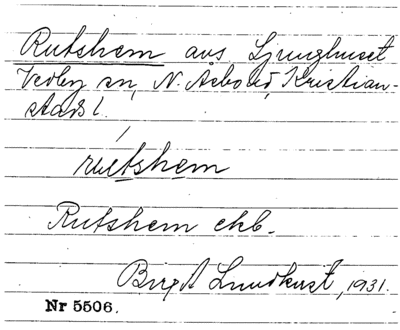 Rutshem avs Ljunghuset
Vedby sn, N. Åsbo hd, Kristian-
stads l.
rutshem
Rutshem ekb.
Birgit Lundkvist, 1931.
Nr 5506.